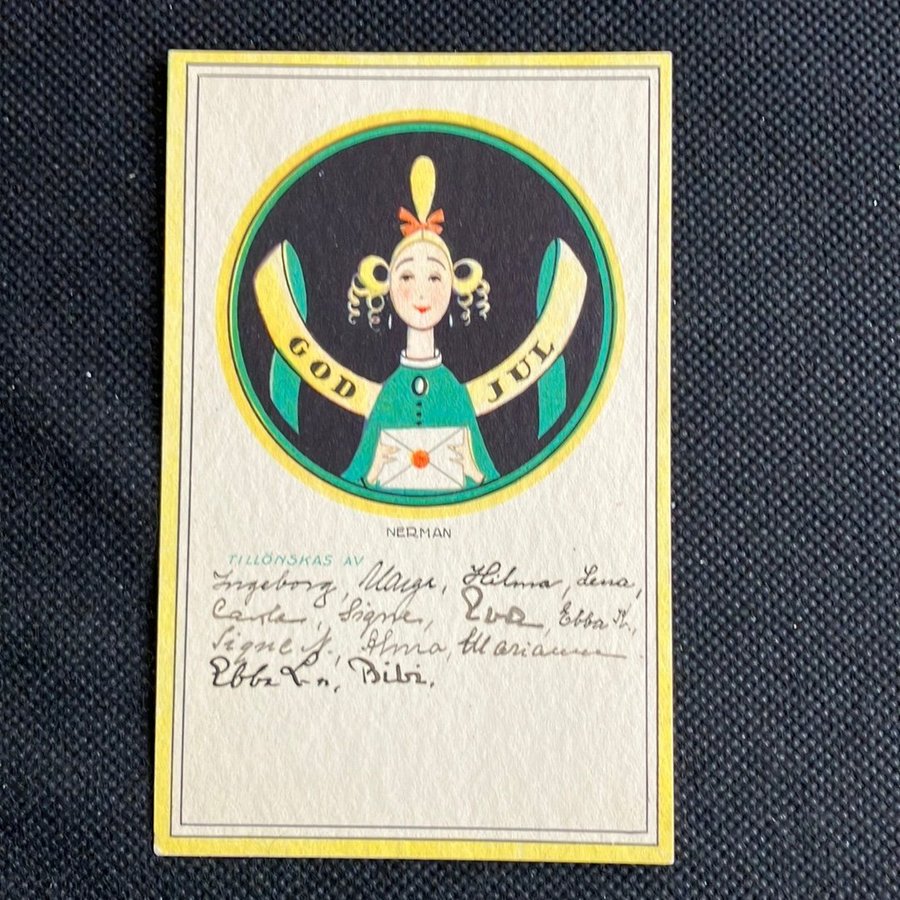 GOD JUL
NERMAN
TILLÖNSKAS AV
Ingeborg, Hilma, Lena,
Signe, Eva, Ebba
Signe N., Alma, Marianne
Ebba L-n, Bibi.